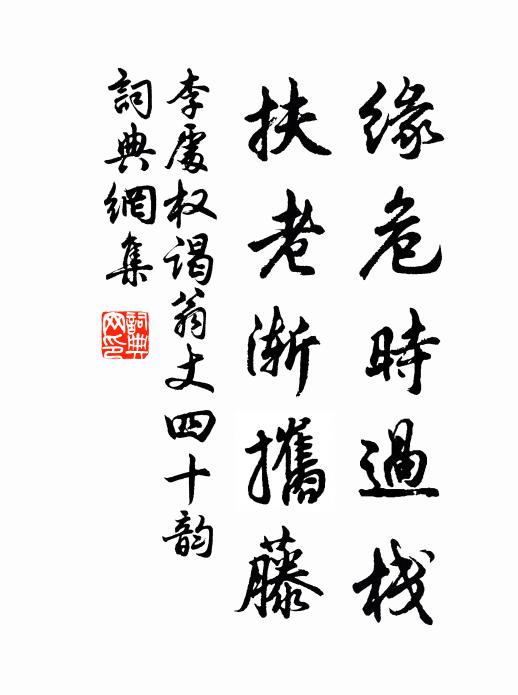 緣危時過栈
扶老漸攜藤
李處权谒翁丈四十韵
詞典網集
詞典网印